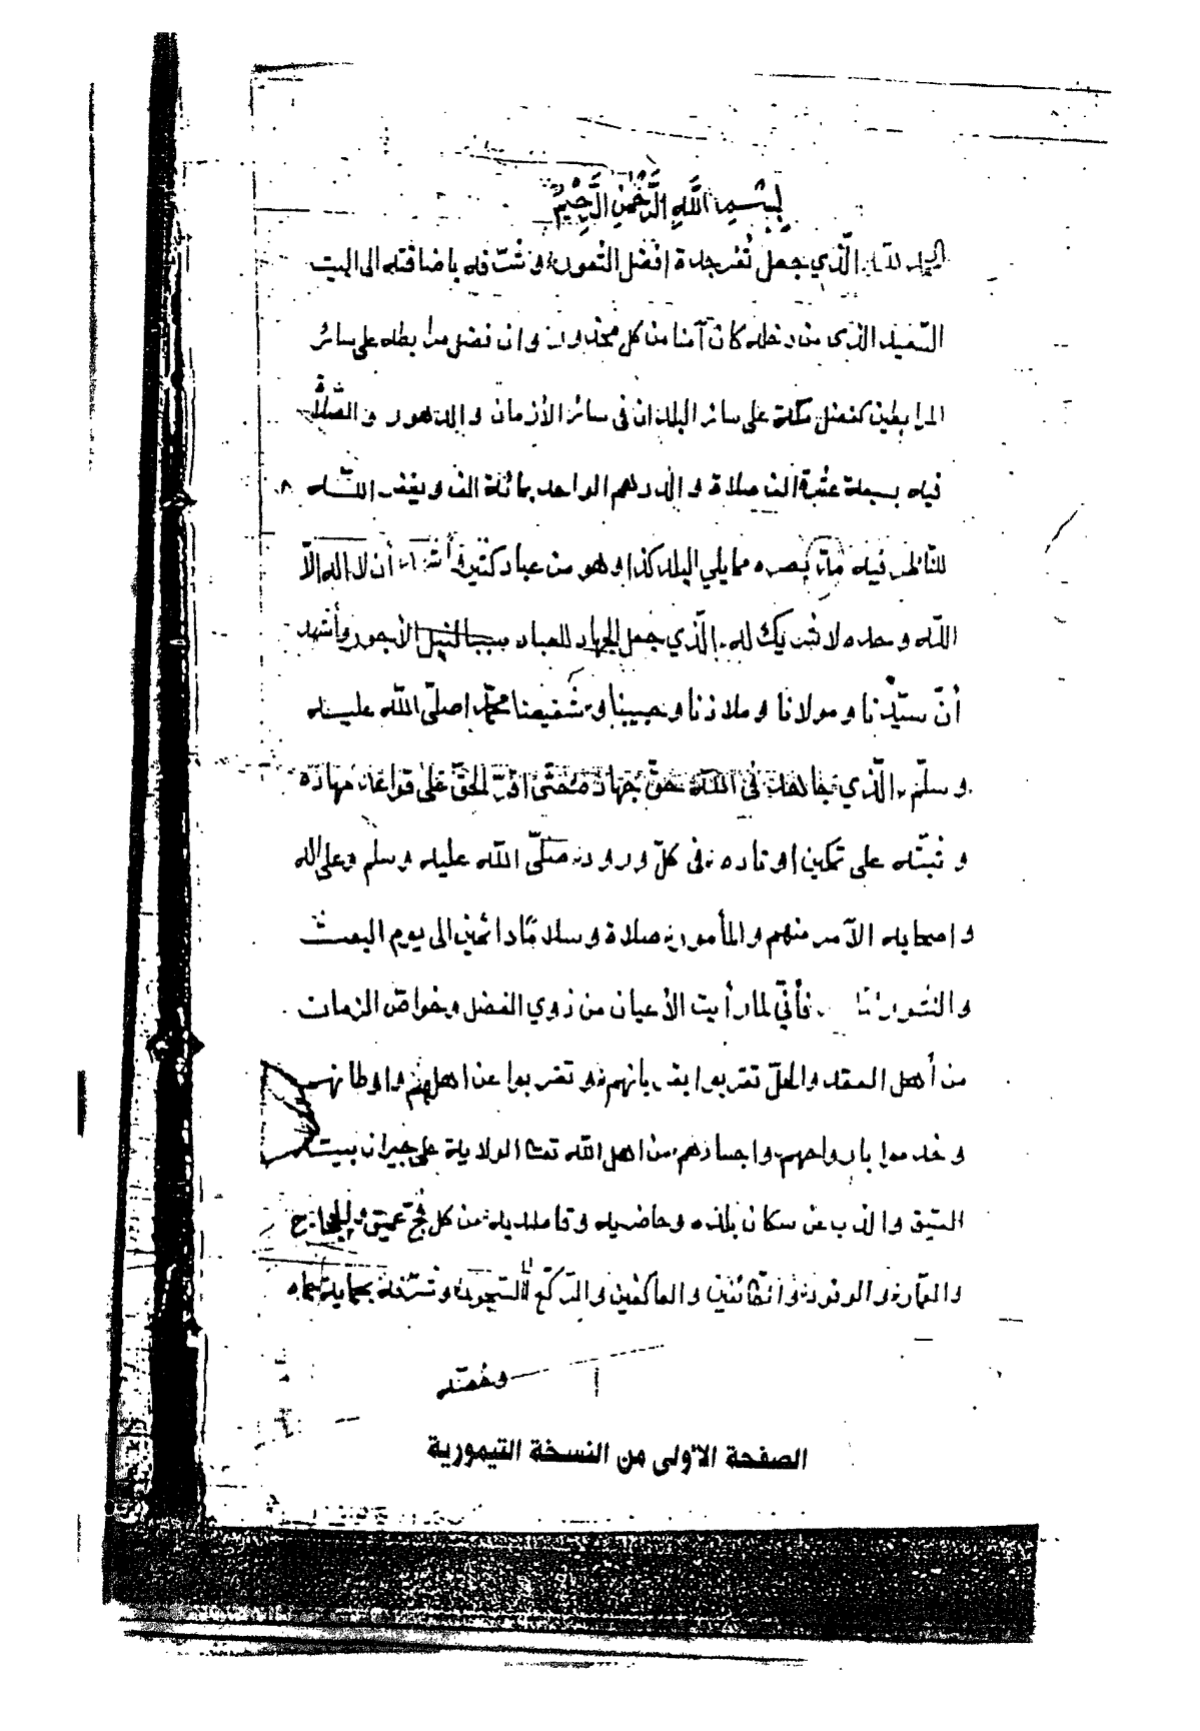 بِسْمِ اللَّهِ الرَّحْمٰنِ الرَّحِيمِ
الحمد لله الّذي جعل ثغر جدة افضل الثغور و شرّفه باضافته الى البيت
الذى من دخله كان آمنا من كل محذور و ان فضل مرابطه على سائر
المرابطين كفضل مكة على سائر البلدان فى سائر الأزمان و الدهور و الصّلاة
فيه بسبعة عشرة الف صلاة و الدرهم الواحد بمائة الف و يغفر اللّه
للنّاظر فيه بصره مما يلي البلد كذا و هو من عباد أن لا اله الاّ
اللّه وحده لا شريك له الّذي جعل الجهاد للعباد سببا لنيل الأجور وأشهد
أنّ سيّدنا و مولانا و ملاذنا و حبيبنا و شفيعنا محمّدا صلّى اللّه عليه
وسلّم الّذي جاهد فى اللّه حقّ جهاده حتّى اقرّ الحقّ على قواعد مهاده
و ثبّته على تمكين اوتاده فى كلّ ورود صلّى اللّه عليه وسلم وعلى اله
و اصحابه الآمر منهم و المأمور صلاة و سلامًا دائمين الى يوم البعث
و النشور فأنّي لما رأيت الأعيان من ذوي الفضل و خواصّ الزمان
من أهل العقد والحلّ تقربوا بقربانهم و تغربوا عن اهلهم و اوطانهم
و خدموا بارواحهم و اجسادهم من اهل الله الولاية على جيران بيته
العتيق و الذب عن سكان بلده و حاضريه و قاصديه من كل فجّ عميق و الحجاج
و العمّار و الوفود و الطائفين و العاكفين و الركّع السجود و تشرّفه بحماية حماه
وخصّه
الصفحة الأولى من النسخة التيمورية